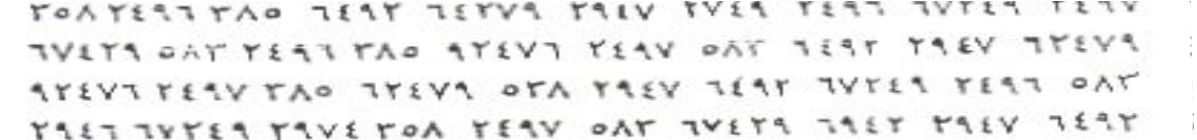 ٣٥٨ ٢٤٩٦ ٣٨٥ ٦٤٩٢ ٦٤٢٧٩ ٢٩٤٧ ٢٧٤٩ ٢٤٩٦ ٦٧٢٤٩ ٢٤٩٧
٦٧٤٢٩ ٥٨٣ ٢٤٩٦ ٣٨٥ ٩٢٤٧٦ ٢٤٩٧ ٥٨٣ ٦٤٩٢ ٢٩٤٧ ٦٢٤٧٩
٩٢٤٧٦ ٢٤٩٧ ٣٨٥ ٦٢٤٧٩ ٥٣٨ ٢٩٤٧ ٦٤٩٢ ٦٧٢٤٩ ٢٤٩٦ ٥٨٣
٢٩٤٦ ٦٧٢٤٩ ٢٩٧٤ ٣٥٨ ٢٤٩٧ ٥٨٣ ٦٧٤٢٩ ٦٩٤٢ ٢٩٤٧ ٦٤٩٢